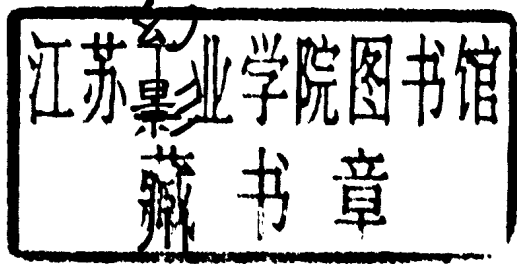 幻影
江苏工业学院图书馆
藏书章